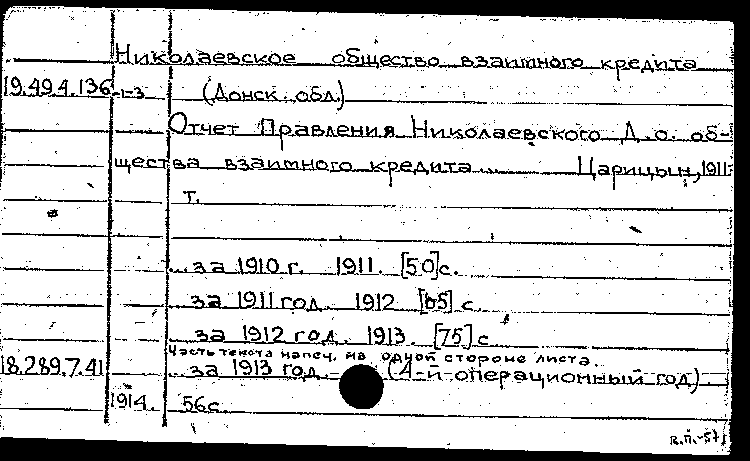 Николаевское общество взаимного кредита
19.494.136-1-3 (Донск. обл.)
Отчет Правления Николаевского Д.о. об-
щества взаимного кредита ... Царицын, 1911-
т.
... за 1910 г. 1911. [50]с.
... за 1911 год. 1912 [65] с
... за 1912 год. 1913. [75] с
Часть текста напеч. на одной стороне листа.
18.289.7.41 ... за 1913 год. (4-й операционный год)
1914. 56с.